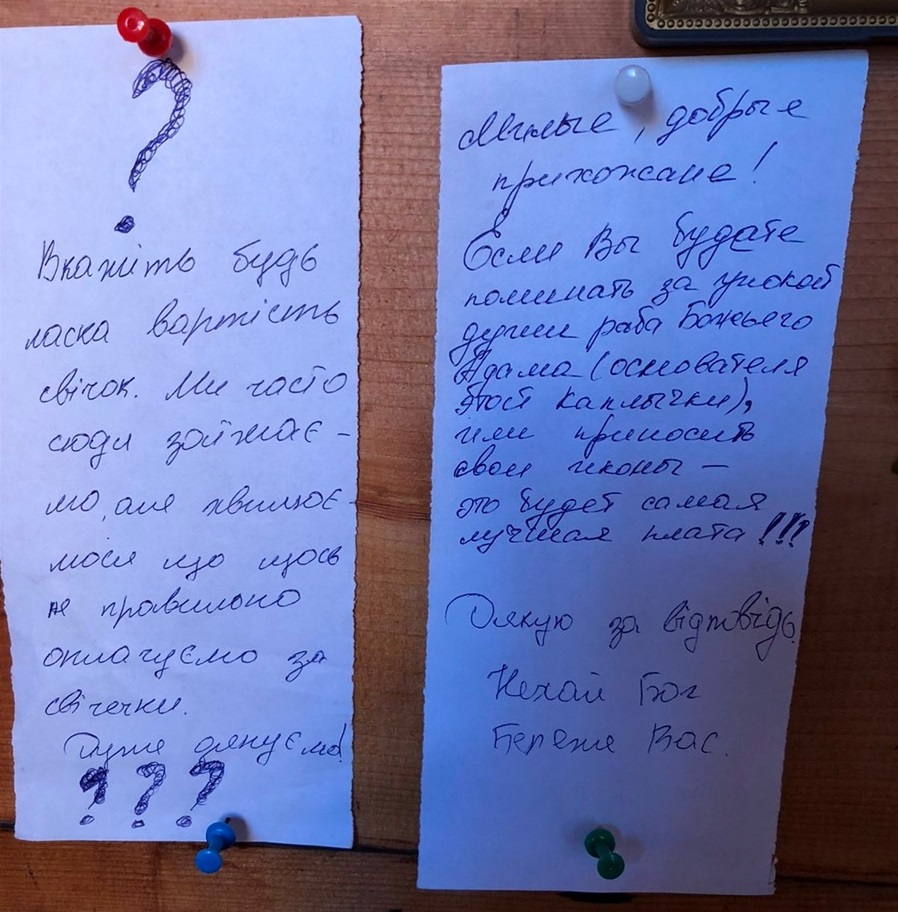 ?
Вкажіть будь
ласка вартість
свічок. Ми часто
сюди заїжає-
мо, але хвилює-
мося що щось
не правильно
оплачуємо за
свічечки.
Дуже дякуємо!
? ? ?
Милые, добрые
прихожане!
Если Вы будете
поминать за упокой
души раба Божьего
Адама (основателя
этой каплычки),
или приносить
свои иконы –
это будет самая
лучшая плата!!!
Дякую за відповідь
Нехай Бог
Береже Вас.